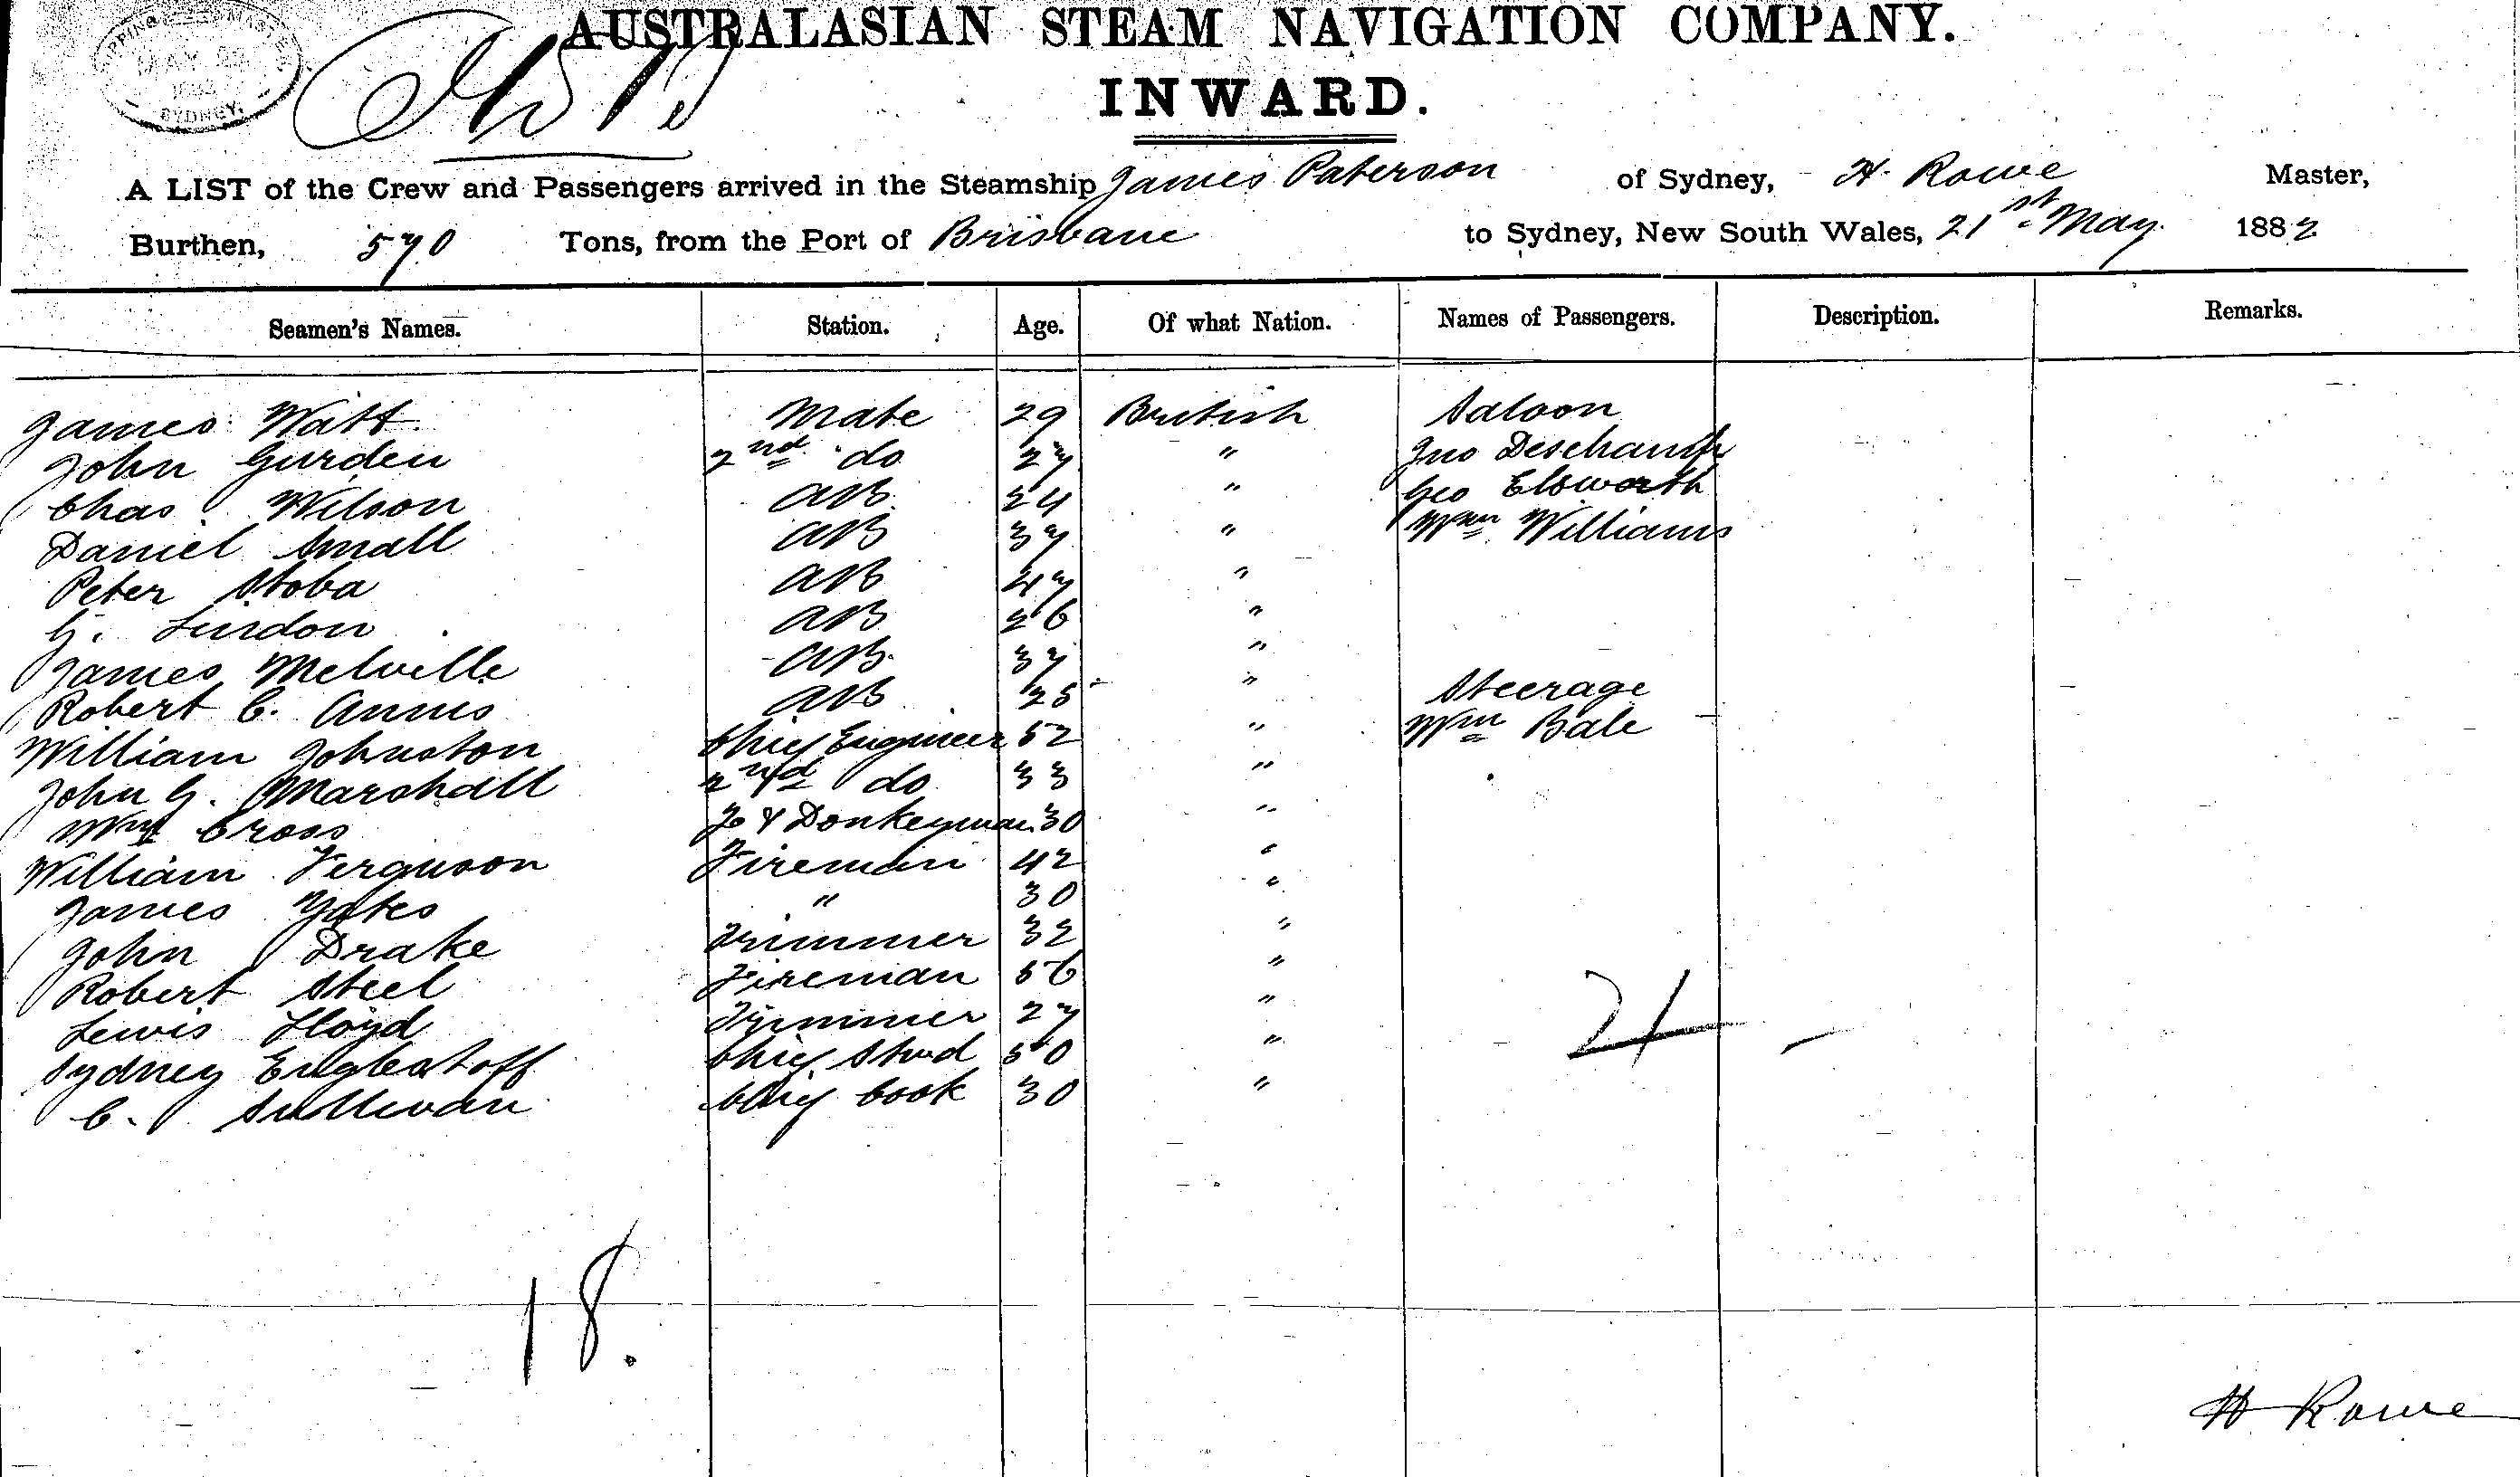 AUSTRALASIAN STEAM NAVIGATION COMPANY.
SYDNEY.
INWARD.
A LIST of the Crew and Passengers arrived in the Steamship James Paterson of Sydney, H. Rowe Master,
Burthen, 570 Tons, from the Port of Brisbane to Sydney, New South Wales, 21st May 1882
Seamen's Names. Station. Age. Of what Nation. Names of Passengers. Description. Remarks.
James Watt Mate 29 British Saloon
John Gurden 2nd do 27 " Jno
Chas Wilson AB 24 " Geo Elsworth
Daniel Small AB 37 " Wm Williams
Peter Stoba AB 47 "
G. Lindon AB 26 "
James Melville AB 37 "
Robert C. Annis AB 25 " Steerage
William Johnston Chief Engineer 52 " Wm Bale
John G. Marshall 2nd do 33 "
Wm Cross & Donkeyman 30 "
William Ferguson Fireman 42 "
James Yates " 30 "
John Drake Trimmer 32 "
Robert Steel Fireman 56 "
Lewis Lloyd Trimmer 27 "
Sydney Chief Stwd 50 "
C. Sullivan Chief Cook 30 "
21
18.
H Rowe